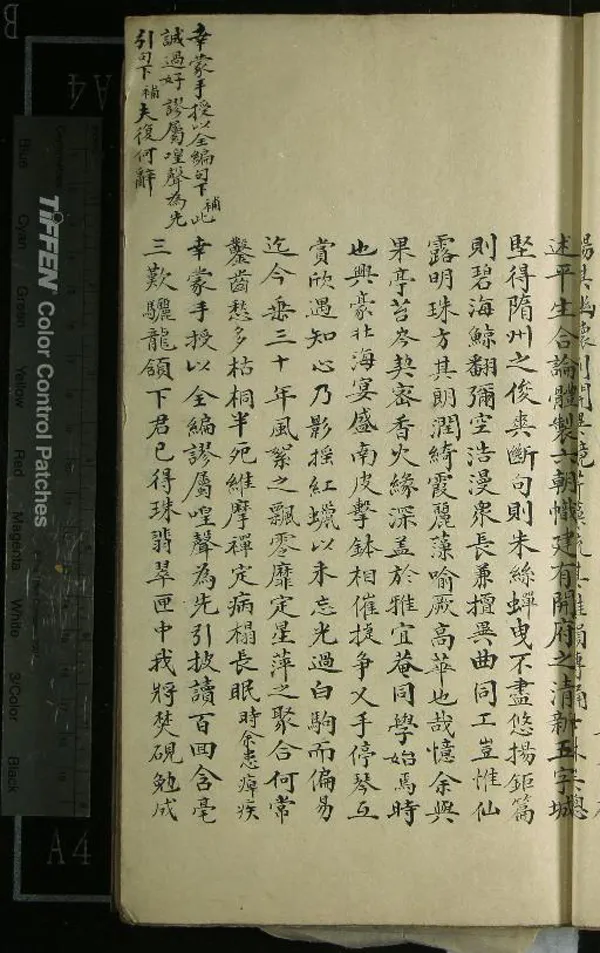 述平生合論體製六朝幟建有開府之清新五字城
堅得隋州之俊爽斷句則朱絲蟬曳不盡悠揚鉅篇
則碧海鯨翻彌空浩漫衆長兼擅異曲同工豈惟仙
露明珠方其朗潤綺霞麗藻喻厥高華也哉憶余與
果亭苔岑契密香火緣深蓋於雅宜菴同學始焉時
也興豪北海宴盛南皮擊鉢相催捷爭叉手停琴互
賞欣遇知心乃影搖紅蠟以未忘光過白駒而偏易
迄今垂三十年風絮之飄零靡定星萍之聚合何常
鑿齒愁多枯桐半死維摩禪定病榻長眠時余患瘴疾
幸蒙手授以全編謬屬喤聲為先引披讀百回含毫
三歎驪龍頷下君已得珠翡翠匣中我將焚硯勉成
幸蒙手授以全編句下補此
誠過好謬屬喤聲為先
引句下補夫復何辭
B
A4
TIFFEN Color Control Patches
Blue
Cyan
Green
Yellow
Red
Magenta
White
3/Color
Black
A4